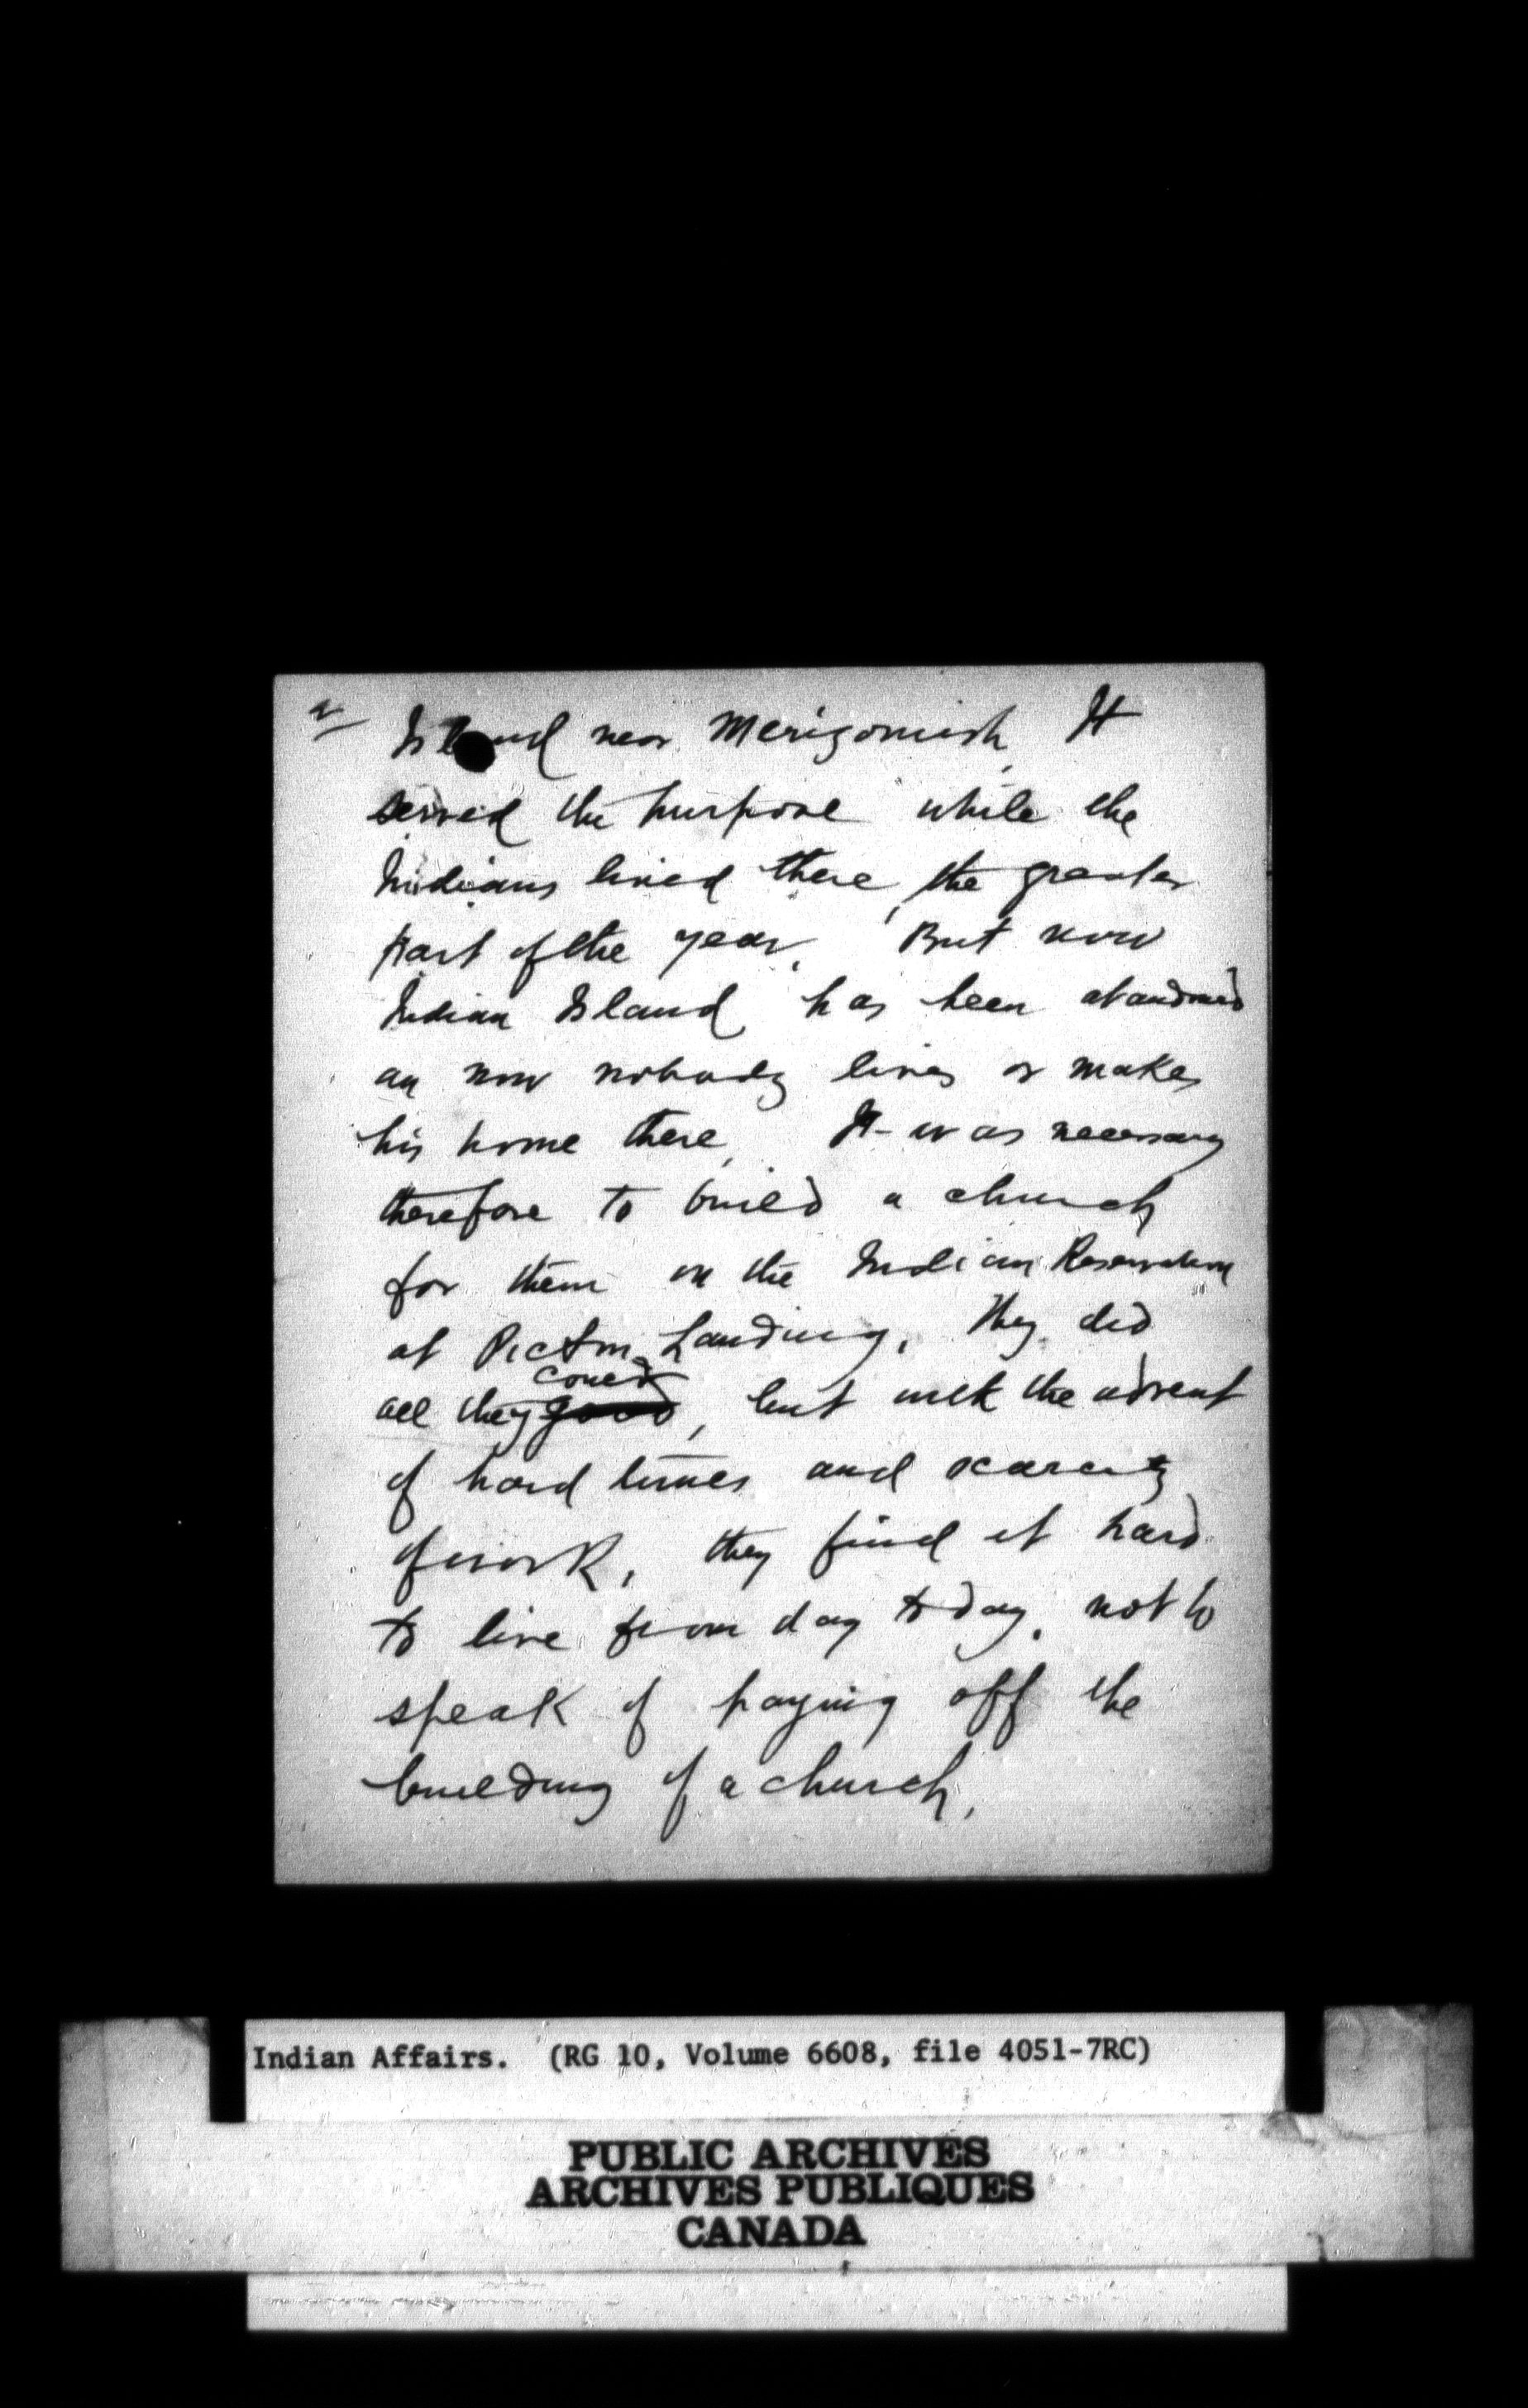 2
Island near Merigomish, It
served the purpose while the
Indians lived there, the greater
part of the year, But now
Indian Island has been abandoned
an now nobody lives or makes
his home there, It was necessary
therefore to build a church
for them on the Indian Reservation
at Pictou Landing, They did
could
all they good, but with the advent
of hard times and scarcity
of work, they find it hard
to live from day to day, not to
speak of paying off the
building of a church,
Indian Affairs. (RG 10, Volume 6608, file 4051-7RC)
PUBLIC ARCHIVES
ARCHIVES PUBLIQUES
CANADA